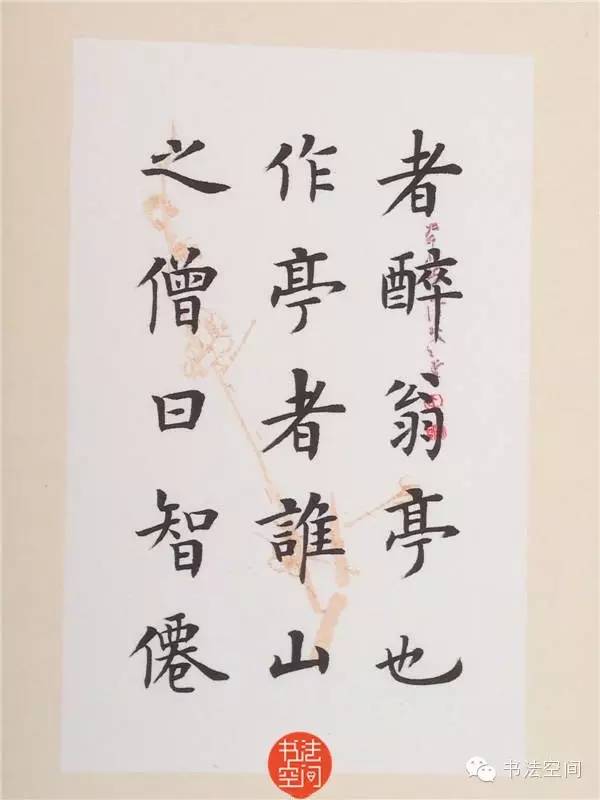 者醉翁亭也
作亭者誰山
之僧曰智僊
书法空间
书法空间